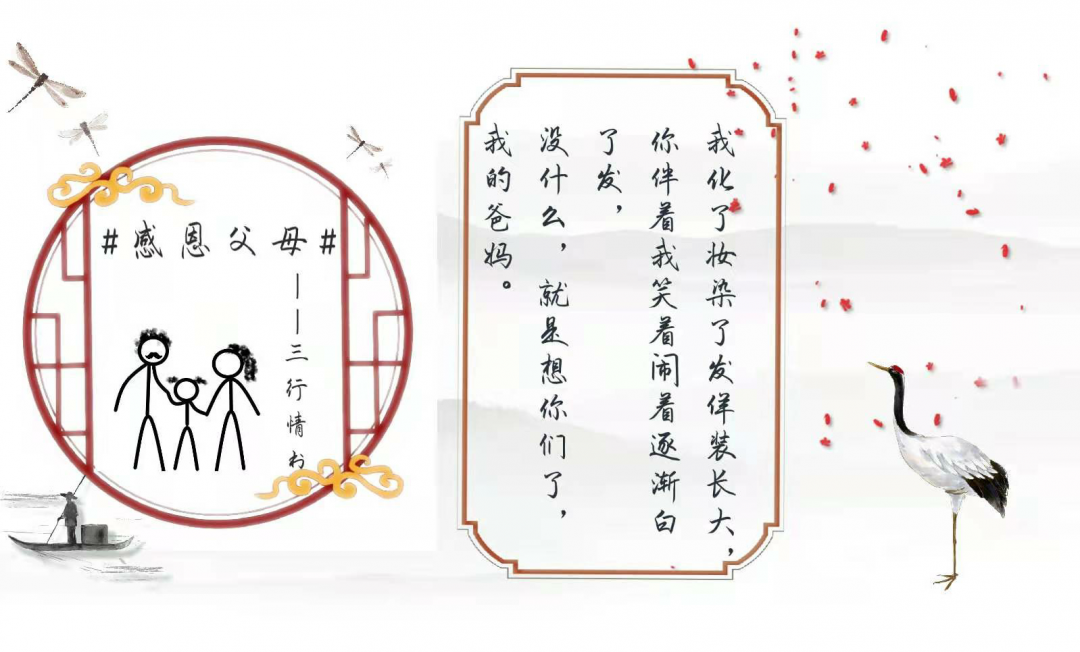 #感恩父母#
——三行情书
我化了妆染了发佯装长大，
你伴着我笑着闹着逐渐白
了发，
没什么，就是想你们了，
我的爸妈。